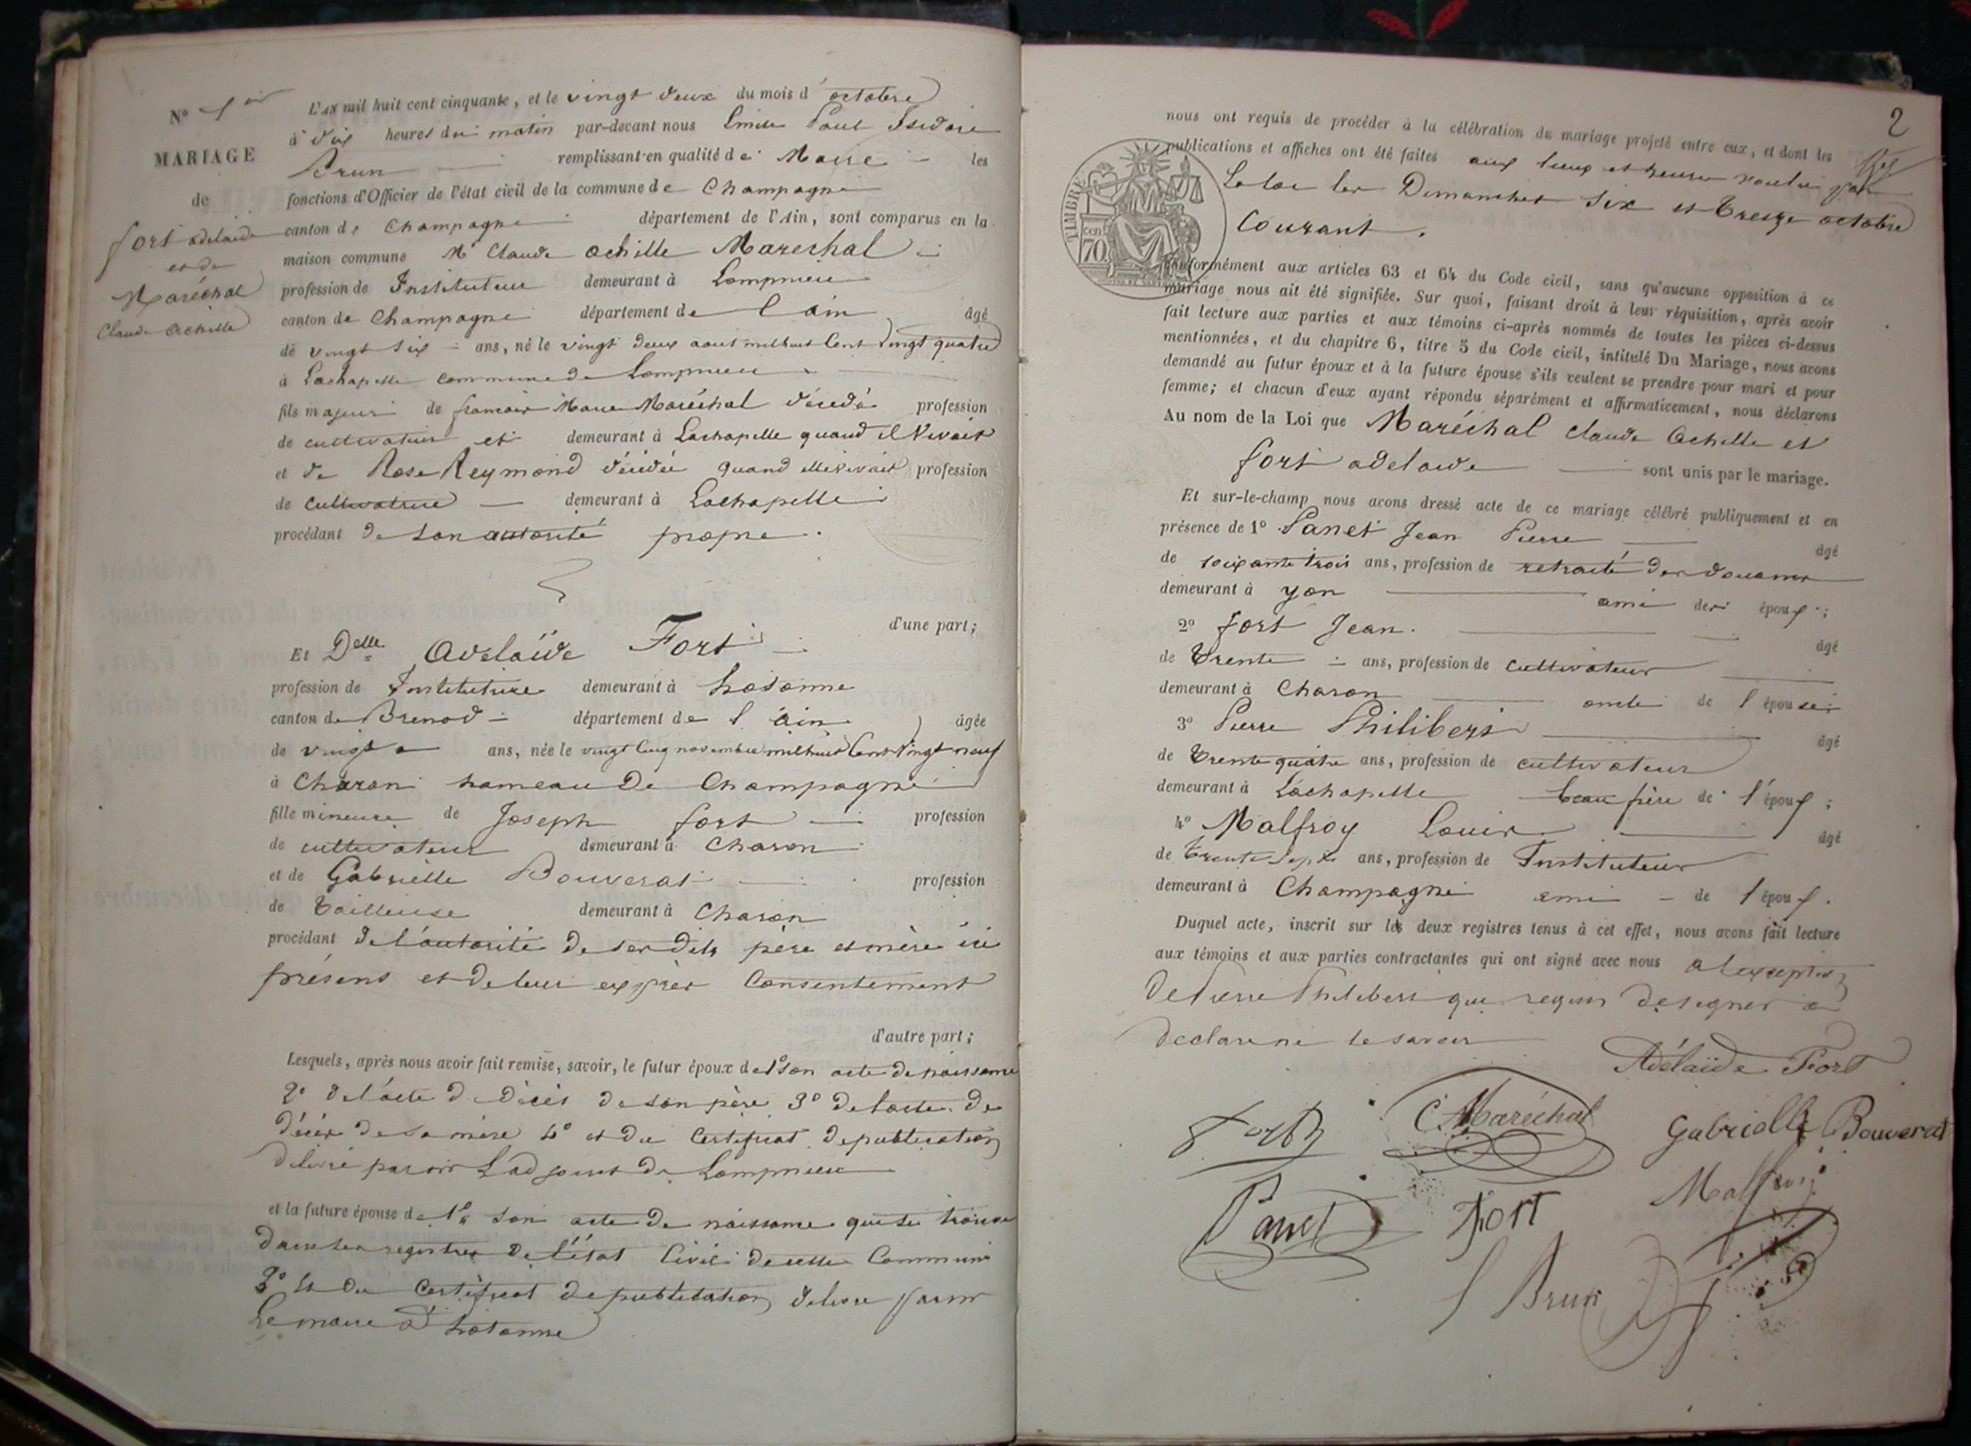 N° 1er
MARIAGE
de
fort adelaide
et de
Maréchal
Claude achille
L'AN mil huit cent cinquante, et le vingt deux du mois d'octobre
à dix heures du matin par-devant nous Emile Paul Isidore
Brun remplissant en qualité de Maire les
fonctions d'Officier de l'état civil de la commune de Champagne
canton de Champagne département de l'Ain, sont comparus en la
maison commune Mr Claude achille Marechal
profession de Instituteur demeurant à Lompnieu
canton de Champagne département de l'ain âgé
de vingt six ans, né le vingt deux aout mil huit Cent vingt quatre
à Lachapelle commune de Lompnieu
fils majeur de francois Marie Maréchal décédé profession
de cultivateur et demeurant à Lachapelle quand il Vivait
et de Rose Reymond décédée quand elle vivait profession
de cultivatrice demeurant à Lachapelle
procédant de son autorité propre.
d'une part;
Et Delle Adelaïde Fort
profession de Institutrice demeurant à hotonne
canton de Brenod département de l'ain âgée
de vingt ans, née le vingt cinq novembre mil huit Cent Vingt neuf
à Charon hameau de Champagne
fille mineure de Joseph fort profession
de cultivateur demeurant à Charon
et de Gabrielle Bouverat profession
de tailleuse demeurant à Charon
procédant de l'autorité de ses dits père et mère ici
présens et de leur exprès Consentement
d'autre part;
Lesquels, après nous avoir fait remise, savoir, le futur époux de 1° son acte de naissance
2° de l'acte de décès de son père 3° de l'acte de
décès de sa mère 4° et du Certificat de publication
délivré par mr L'adjoint de Lompnieu
et la future épouse de 1° son acte de naissance qui se trouve
dans les registres de l'état Civil de cette Commune
2° et du Certificat de publication délivré par mr
Le maire d'hotonne
2
nous ont requis de procéder à la célébration du mariage projeté entre eux, et dont les
publications et affiches ont été faites aux lieux et heures voulus par
La loi les Dimanches six et treize octobre
Courant.
TIMBRE
CEN 70
conformément aux articles 63 et 64 du Code civil, sans qu'aucune opposition à ce
mariage nous ait été signifiée. Sur quoi, faisant droit à leur réquisition, après avoir
fait lecture aux parties et aux témoins ci-après nommés de toutes les pièces ci-dessus
mentionnées, et du chapitre 6, titre 5 du Code civil, intitulé Du Mariage, nous avons
demandé au futur époux et à la future épouse s'ils veulent se prendre pour mari et pour
femme; et chacun d'eux ayant répondu séparément et affirmativement, nous déclarons
Au nom de la Loi que Maréchal claude Achille et
fort adelaide sont unis par le mariage.
Et sur-le-champ nous avons dressé acte de ce mariage célébré publiquement et en
présence de 1° Panet Jean Pierre âgé
de soixante trois ans, profession de retraité des douanes
demeurant à yon ami des époux;
2° fort Jean. âgé
de trente ans, profession de cultivateur
demeurant à Charon oncle de l'épouse
3° Pierre Philibert âgé
de trente quatre ans, profession de cultivateur
demeurant à Lachapelle beau frère de l'époux;
4° Malfroy Louis âgé
de trente sept ans, profession de Instituteur
demeurant à Champagne ami de l'époux.
Duquel acte, inscrit sur les deux registres tenus à cet effet, nous avons fait lecture
aux témoins et aux parties contractantes qui ont signé avec nous à l'exception
de Pierre Philibert qui requis de signer a
déclaré ne le savoir
Adélaïde Fort
Fort C. Maréchal Gabrielle Bouverat
Panet Fort Malfroy
Brun